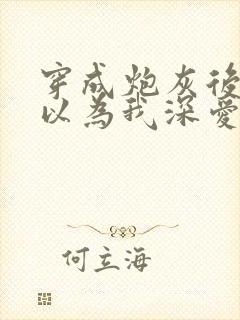 穿成炮灰後
以為我深愛
何立海